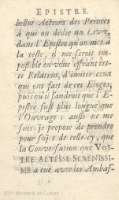 EPISTRE
belles Actions des Princes
à qui on dédie un Livre,
dans l'Epistre qu'on met à
la teste, il me seroit
possible en veüe
Relation, d'imiter ceux
qui ont fait de ces Eloges,
puisqu'il faudroit que l'E-
pistre fust plus longue que
l'Ouvrage: aussi ne
me propose de prendre
pour sujet de celle-cy, que
la Conversation que VOS-
TRE ALTESSE SERENISSI-
ME a euë avec les Ambas-